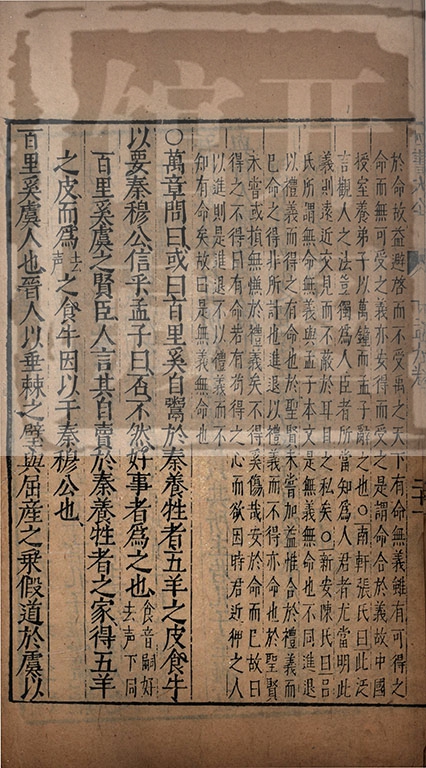 於命故益避啓而不受禹之天下有命無義雖有可得之
命而無可受之義亦安得而受之是謂命合於義故中國
授室養弟子以萬鍾而孟子辭之也○南軒張氏曰此泛
言觀人之法豈獨為人臣者所當知為人君者尤當明此
義則遠近交見而不蔽於耳目之私矣○新安陳氏曰呂
氏所謂無命無義與孟子本文是無義無命也不同進退
以禮義而得之有命也於聖賢未嘗加益惟合於禮義而
已命之得非所計也進退以禮義而不得亦命也於聖賢
未嘗或損無憮於禮義矣不得奚傷哉安於命而已故曰
得之不得曰有命若有苟得之心而欲因時君近狎之人
以進則是進退不以禮義而不
知有命矣故曰是無義無命也
○萬章問曰或曰百里奚自鬻於秦養牲者五羊之皮食牛
以要秦穆公信乎孟子曰否不然好事者為之也食音嗣好去聲下同
百里奚虞之賢臣人言其自賣於秦養牲者之家得五羊
之皮而為去聲之食牛因以干秦穆公也
百里奚虞人也晉人以垂棘之璧與屈産之乘假道於虞以